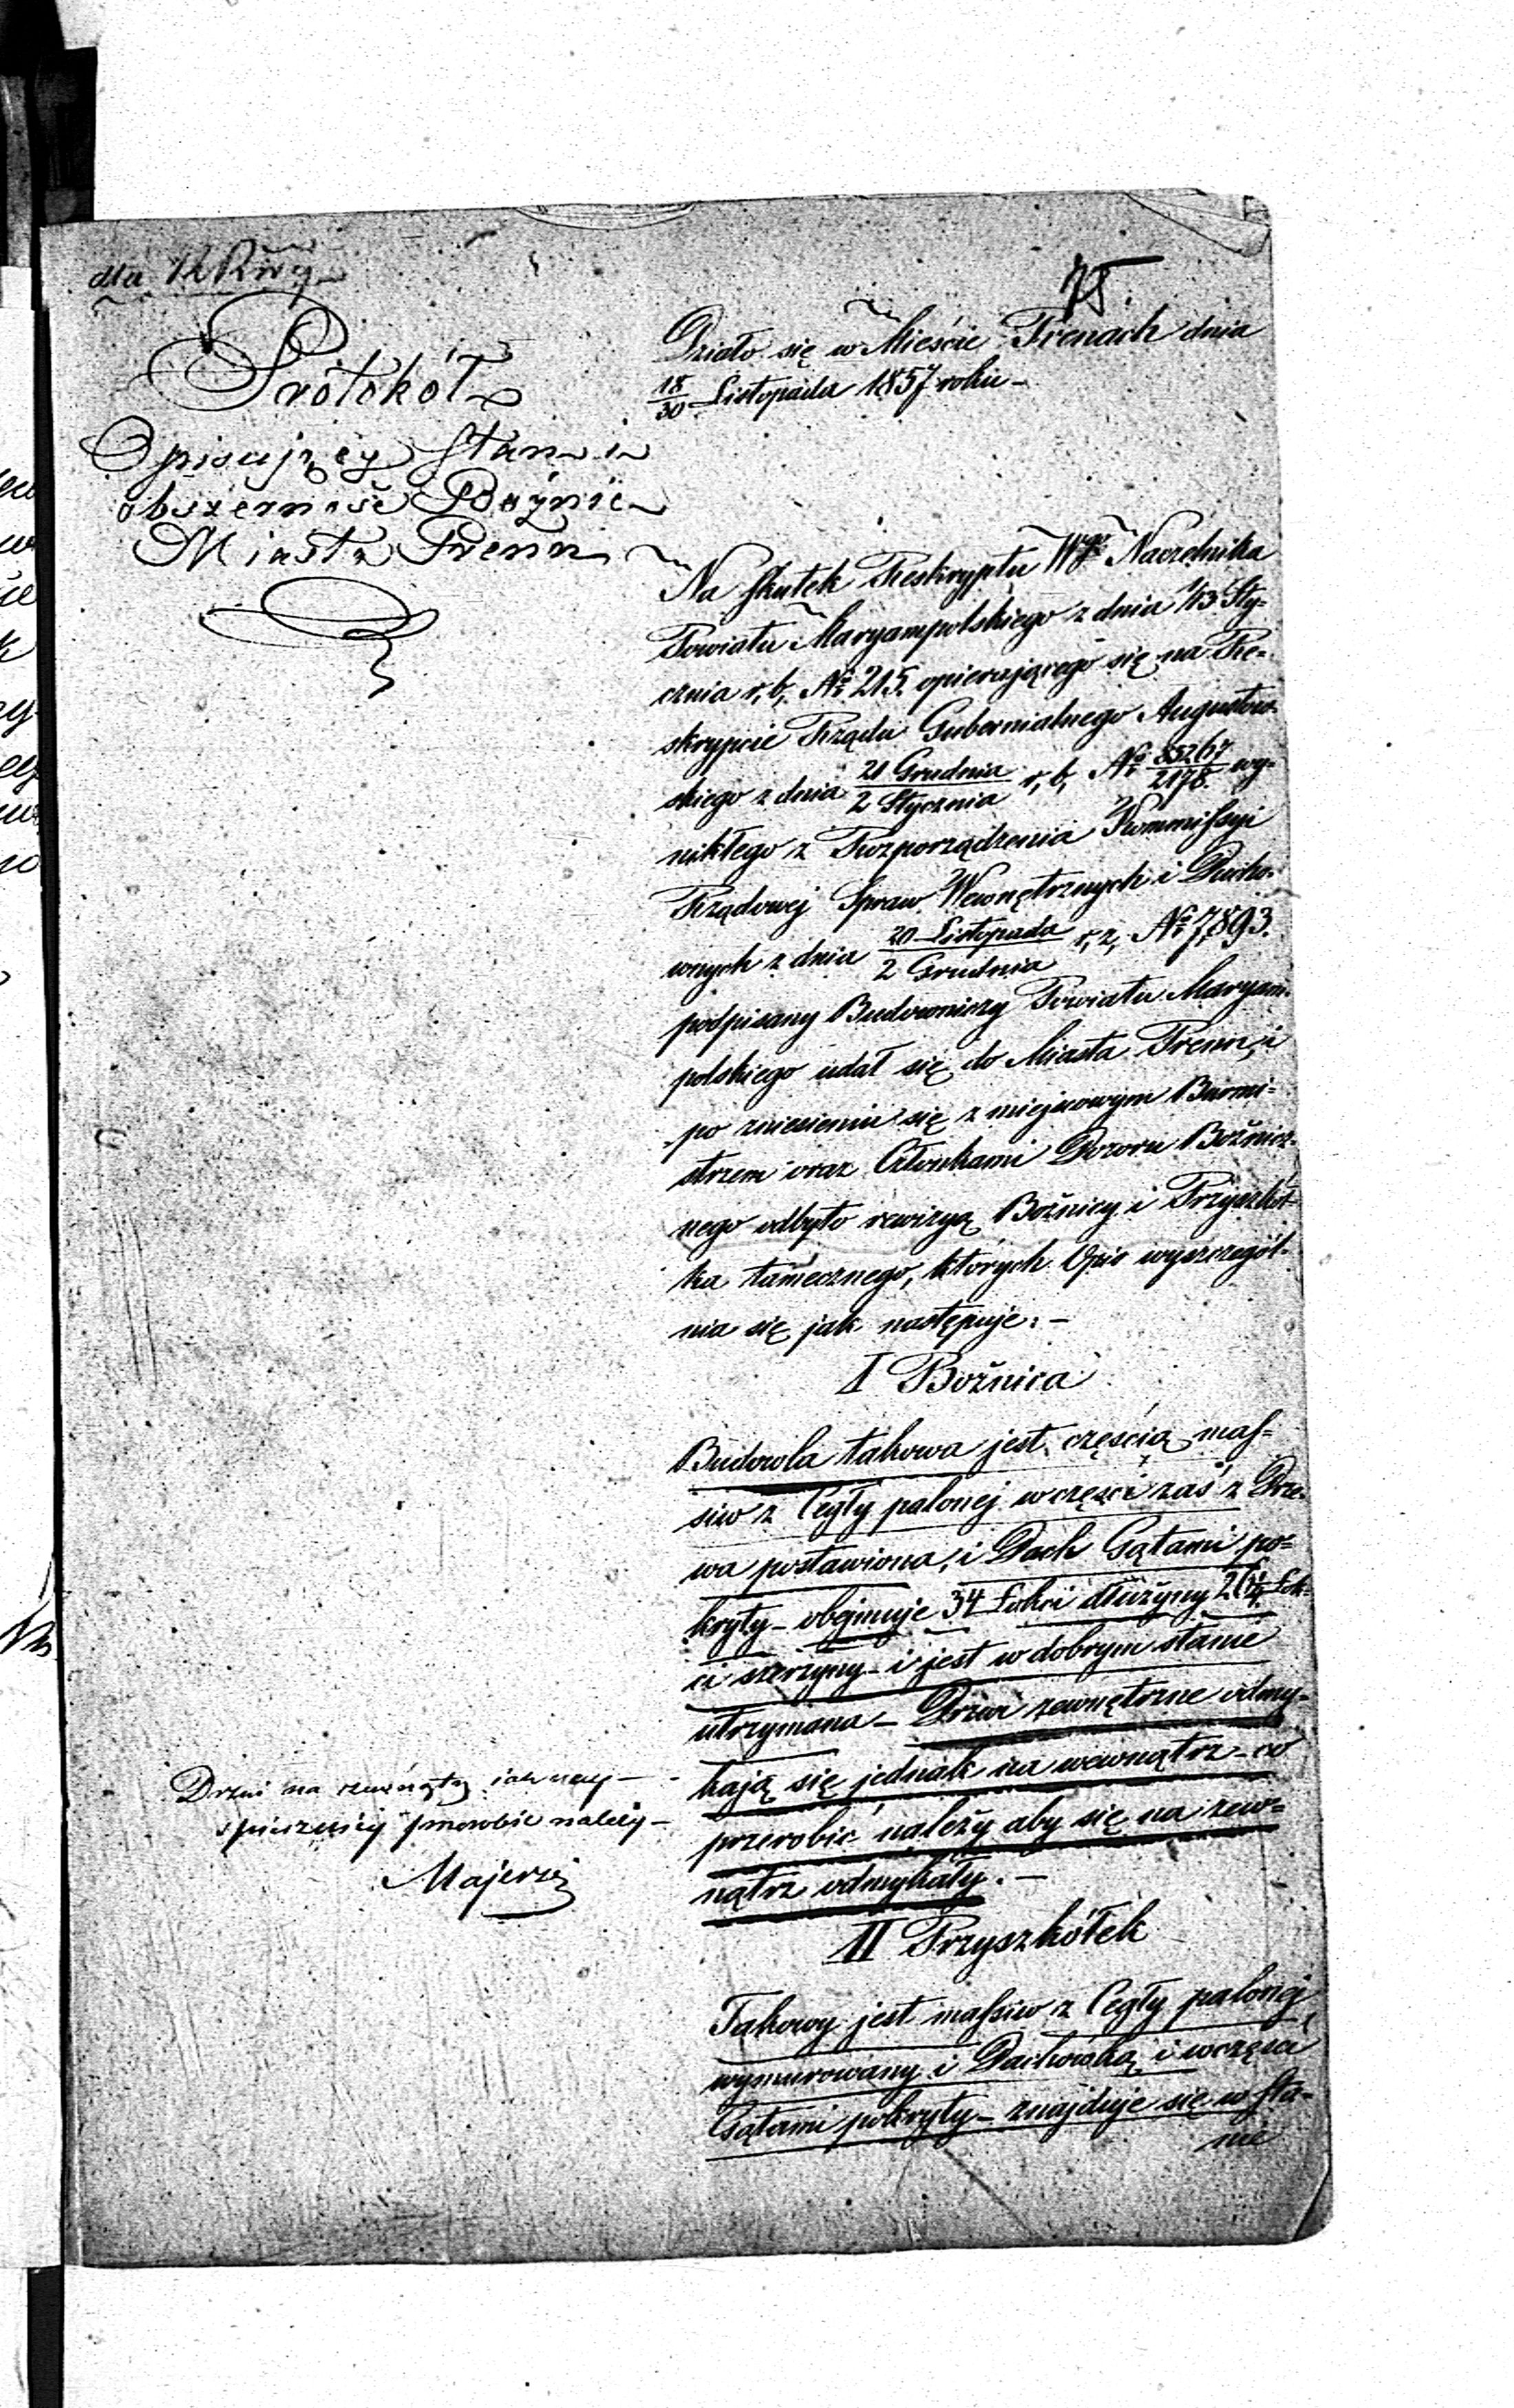 dla
75
Protokół
Opisujący stan i
obszerność Bóżnic
Miasta Prenn
Działo się w Mieście Prenach dnia
18/30 Listopada 1857 roku –
Na skutek Reskryptu Wgo Naczelnika
Powiatu Maryampolskiego z dnia 1/13 Sty-
cznia r, b, No 215. opierającego się na Re-
skrypcie Rządu Gubernialnego Augustow-
skiego z dnia 21 Grudnia/2 Stycznia r, b, No 85267/2178. wy-
nikłego z Rozporządzenia Kommissyi
Rządowej Spraw Wewnętrznych i Ducho-
wnych z dnia 20 Listopada/2 Grudnia r, z, No 7,893.
podpisany Budowniczy Powiatu Maryam-
polskiego udał się do Miasta Prenn, i
po zniesieniu się z miejscowym Burmi-
strzem oraz Członkami Dozoru Bożnicz-
nego odbyto rewizyą Bożnicy i Przyszkół-
ka tamecznego, których Opis wyszczegól-
nia się jak następuje: –
I Bożnica
Budowla takowa jest częścią mas-
siw z Cegły palonej w części zaś z Drze-
wa postawiona, i Dach Gątami po-
kryty – obejmuje 34 Łokci dłużyny 26 Łok-
ci szerzyny – i jest w dobrym stanie
utrzymana – Drzwi zewnętrzne odmy-
kają się jednak na wewnątrz – co
przerobić należy aby się na zew-
nątrz odmykały. –
Drzwi na zewnątrz jak naj-
spieszniej przerobić należy –
Majerski
II Przyszkółek
Takowy jest massiw z Cegły palonej
wymurowany i Dachówką i w części
Gątami pokryty – znajduje się w sta-
nie